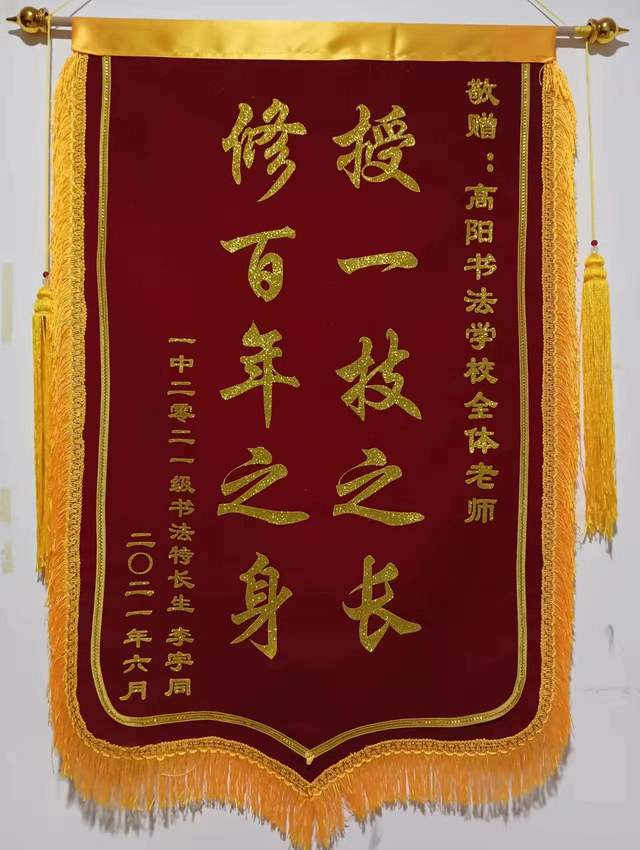 敬赠：高阳书法学校全体老师
授一技之长
修百年之身
一中二零二一级书法特长生 李宇同
二〇二一年六月